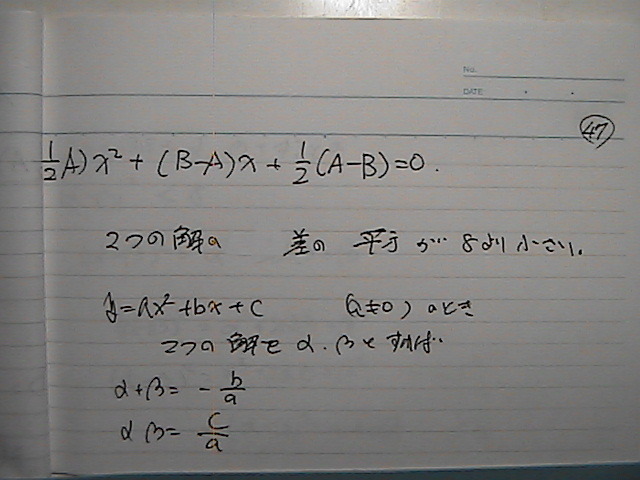 No.
DATE
47
1/2 A) x² + (B-A)x + 1/2 (A-B)=0.
2つの解の 差の 平方が 8より小さい.
y=ax²+bx+c (a≠0) のとき
2つの解をα.βとすれば
α+β= - b/a
αβ= c/a